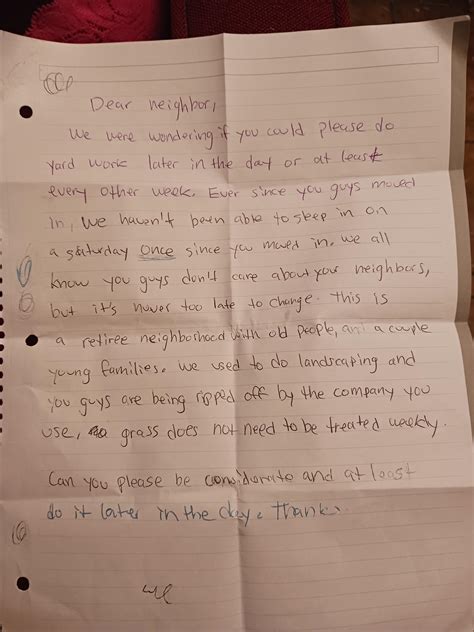 Dear neighbor,
We were wondering if you could please do
yard work later in the day or at least
every other week. Ever since you guys moved
in, we haven't been able to sleep in on
a saturday once since you moved in. we all
know you guys don't care about your neighbors,
but it's never too late to change. This is
a retiree neighborhood with old people, and a couple
young families. we used to do landscaping and
you guys are being ripped off by the company you
use, grass does not need to be treated weekly.
Can you please be considerate and at least
do it later in the day. Thanks.